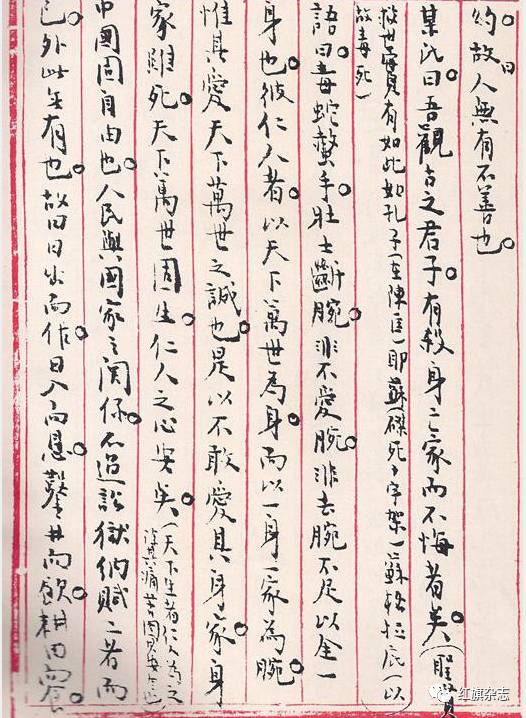 約曰故人無有不善也。
某氏曰吾觀古之君子。有殺身亡家而不悔者矣。(聖賢
救世實有如此如孔子(在陳匡)耶蘇(磔死十字架)蘇格拉底(以
故毒死)
語曰毒蛇螫手。壯士斷腕。非不愛腕。非去腕不足以全一
身也。彼仁人者。以天下萬世為身。而以一身一家為腕。
惟其愛天下萬世之誠也。是以不敢愛其身家。身
家雖死。天下萬世固生。仁人之心安矣。(天下生者仁人為之
除其痛苦圖其安全也)
中國固自由也。人民與國家之関係。不過訟獄納賦二者而
已。外此無有也。故曰日出而作。日入而息。鑿井而飲。耕田而食。
红旗杂志